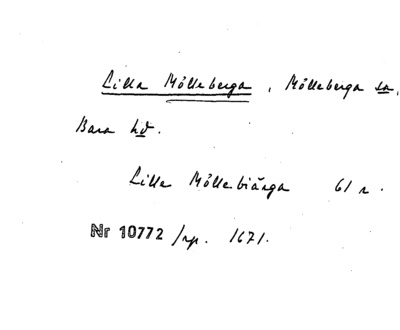 Lilla Mölleberga, Mölleberga sn,
Bara hd.
Lille Möllebiärga 61 r.
Nr 10772 /rp. 1671.